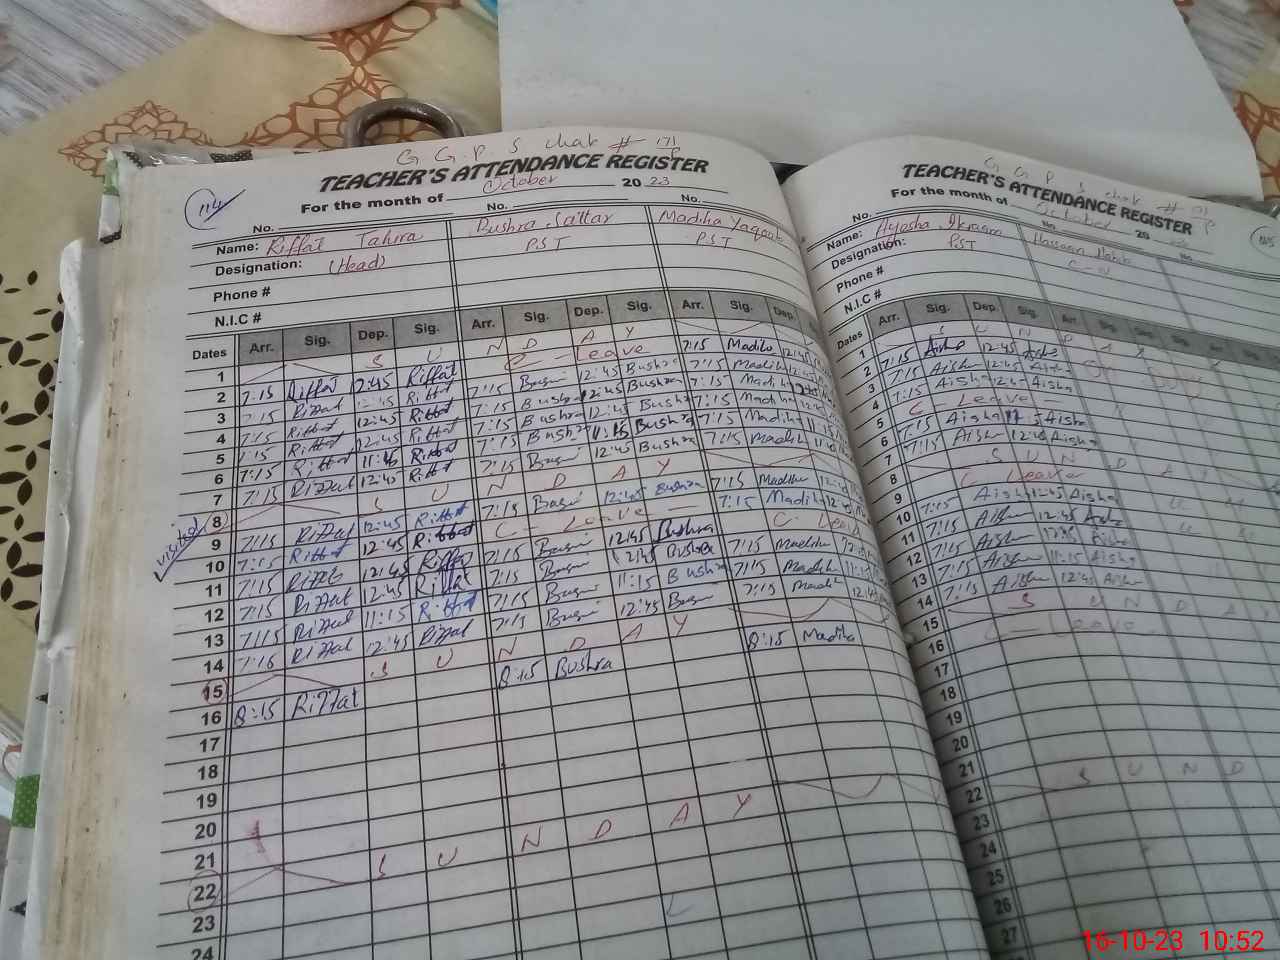 G G.P.S chak # 171/P
TEACHER'S ATTENDANCE REGISTER
For the month of October 2023
114
No. No. No.
Name: Riffat Tahira Bushra Sattar Madiha Yaqoob
Designation: (Head) PST PST
Phone #
N.I.C #
Dates Arr. Sig. Dep. Sig. Arr. Sig. Dep. Sig. Arr. Sig. Dep.
1 S U N D A Y
2 7:15 Riffat 12:45 Riffat C - Leave 7:15 Madiha 12:45
3 7:15 Riffat 12:45 Riffat 7:15 Bushra 12:45 Bushra 7:15 Madiha 12:45
4 7:15 Riffat 12:45 Riffat 7:15 Bushra 12:45 Bushra 7:15 Madiha
5 7:15 Riffat 12:45 Riffat 7:15 Bushra 12:45 Bushra 7:15 Madiha
6 7:15 Riffat 11:15 Riffat 7:15 Bushra 11:15 Bushra 7:15 Madiha 11:15
7 7:15 Riffat 12:45 Riffat 7:15 Bushra 12:45 Bushra 7:15 Madiha
8 S U N D A Y
visited
9 7:15 Riffat 12:45 Riffat 7:15 12:45 Bushra 7:15 Madiha
10 7:15 Riffat 12:45 Riffat C - Leave 7:15 Madiha
11 7:15 Riffat 12:45 Riffat 7:15 12:45 Bushra C - Leave
12 7:15 Riffat 12:45 Riffat 7:15 12:45 Bushra 7:15 Madiha
13 7:15 Riffat 11:15 Riffat 7:15 11:15 Bushra 7:15 Madiha 11:15
14 7:16 Riffat 12:45 Riffat 7:15 12:45 7:15 Madiha 12:45
15 S U N D A Y
16 8:15 Riffat 8:15 Bushra 8:15 Madiha
17
18
19
20
21
22 S U N D A Y
23
24
G G P S chak # 171/P
TEACHER'S ATTENDANCE REGISTER
For the month of October 20
No. No. No.
Name: Ayesha Ikraam
Designation: PST
Phone #
N.I.C #
Dates Arr. Sig. Dep. Sig. Arr. Sig.
1 S U N D A Y
2 7:15 Aisha 12:45 Aisha
3 7:15 Aisha 12:45 Aisha
4 7:15 Aisha 12:45 Aisha
5 C - Leave
6 7:15 Aisha 11:15 Aisha
7 7:15 Aisha 12:45 Aisha
8 S U N D A Y
9 C Leave
10 7:15 Aisha 12:45 Aisha
11 7:15 Aisha 12:45 Aisha
12 7:15 Aisha 12:45 Aisha
13 7:15 Aisha 11:15 Aisha
14 7:15 Aisha 12:45 Aisha
15 S U N D A
16 C - Leave
17
18
19
20
21
22 S U N D
23
24
25
26
27
16-10-23 10:52